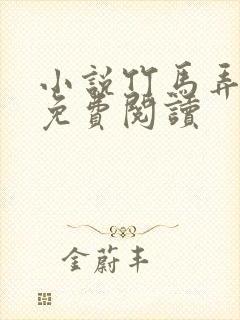 小說竹馬弄
免費閱讀
金蔚丰